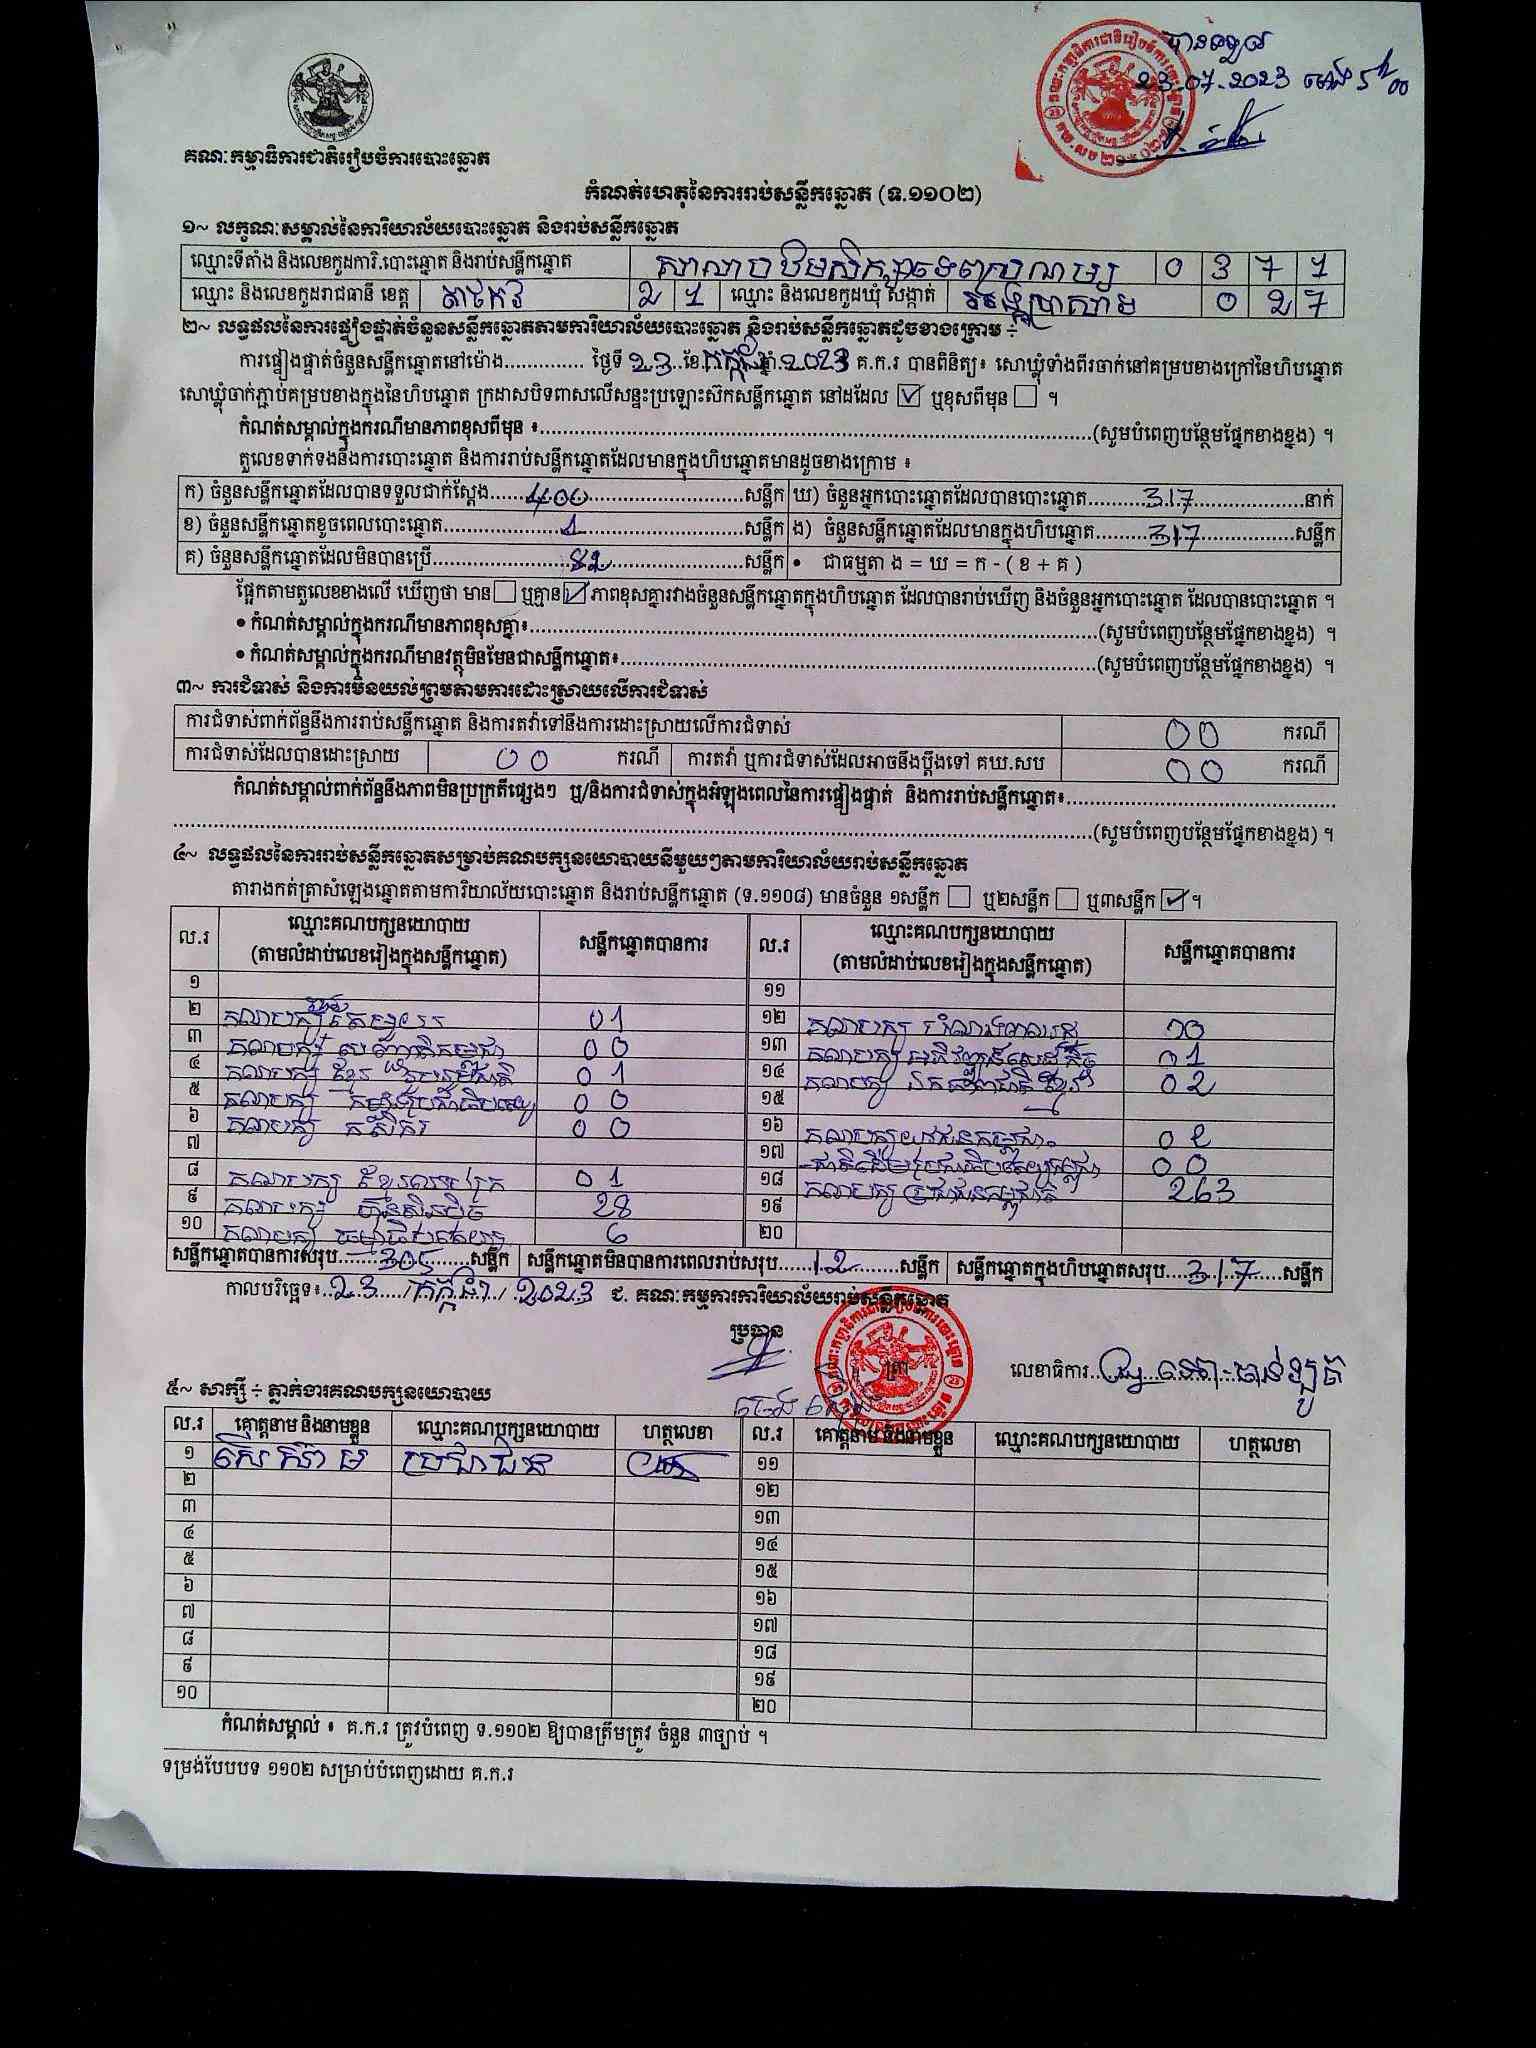 បានទទួល
23.07.2023 ម៉ោង 5h00
គណៈកម្មាធិការជាតិរៀបចំការបោះឆ្នោត
កំណត់ហេតុនៃការរាប់សន្លឹកឆ្នោត (ទ.១១០២)
១~ លក្ខណៈសម្គាល់នៃការិយាល័យបោះឆ្នោត និងរាប់សន្លឹកឆ្នោត
ឈ្មោះទីតាំង និងលេខកូដការិ.បោះឆ្នោត និងរាប់សន្លឹកឆ្នោត សាលាបឋមសិក្សាទេពប្រណម្យ 0 3 7 1
ឈ្មោះ និងលេខកូដរាជធានី ខេត្ត តាកែវ 2 1 ឈ្មោះ និងលេខកូដឃុំ សង្កាត់ 0 2 7
២~ លទ្ធផលនៃការផ្ទៀងផ្ទាត់ចំនួនសន្លឹកឆ្នោតតាមការិយាល័យបោះឆ្នោត និងរាប់សន្លឹកឆ្នោតដូចខាងក្រោម ÷
ការផ្ទៀងផ្ទាត់ចំនួនសន្លឹកឆ្នោតនៅម៉ោង.............. ថ្ងៃទី 23 ខែ កក្កដា ឆ្នាំ 2023 គ.ក.រ បានពិនិត្យ៖ សោឃ្លុំទាំងពីរចាក់នៅគម្របខាងក្រៅនៃហិបឆ្នោត
សោឃ្លុំចាក់ភ្ជាប់គម្របខាងក្នុងនៃហិបឆ្នោត ក្រដាសបិទពាសលើសន្ទះប្រឡោះស៊កសន្លឹកឆ្នោត នៅដដែល ☑ ឬខុសពីមុន ☐ ។
កំណត់សម្គាល់ក្នុងករណីមានភាពខុសពីមុន ៖..............(សូមបំពេញបន្ថែមផ្នែកខាងខ្នង) ។
តួលេខទាក់ទងនឹងការបោះឆ្នោត និងការរាប់សន្លឹកឆ្នោតដែលមានក្នុងហិបឆ្នោតមានដូចខាងក្រោម ៖
ក) ចំនួនសន្លឹកឆ្នោតដែលបានទទួលជាក់ស្តែង.....400.....សន្លឹក ឃ) ចំនួនអ្នកបោះឆ្នោតដែលបានបោះឆ្នោត.....317.....នាក់
ខ) ចំនួនសន្លឹកឆ្នោតខូចពេលបោះឆ្នោត.....1.....សន្លឹក ង) ចំនួនសន្លឹកឆ្នោតដែលមានក្នុងហិបឆ្នោត.....317.....សន្លឹក
គ) ចំនួនសន្លឹកឆ្នោតដែលមិនបានប្រើ.....82.....សន្លឹក • ជាធម្មតា ង = ឃ = ក - ( ខ + គ )
ផ្អែកតាមតួលេខខាងលើ ឃើញថា មាន ☐ ឬគ្មាន ☑ ភាពខុសគ្នារវាងចំនួនសន្លឹកឆ្នោតក្នុងហិបឆ្នោត ដែលបានរាប់ឃើញ និងចំនួនអ្នកបោះឆ្នោត ដែលបានបោះឆ្នោត ។
• កំណត់សម្គាល់ក្នុងករណីមានភាពខុសគ្នា៖..............(សូមបំពេញបន្ថែមផ្នែកខាងខ្នង) ។
• កំណត់សម្គាល់ក្នុងករណីមានវត្ថុមិនមែនជាសន្លឹកឆ្នោត៖..............(សូមបំពេញបន្ថែមផ្នែកខាងខ្នង) ។
៣~ ការជំទាស់ និងការមិនយល់ព្រមតាមការដោះស្រាយលើការជំទាស់
ការជំទាស់ពាក់ព័ន្ធនឹងការរាប់សន្លឹកឆ្នោត និងការតវ៉ាទៅនឹងការដោះស្រាយលើការជំទាស់ 00 ករណី
ការជំទាស់ដែលបានដោះស្រាយ 00 ករណី ការតវ៉ា ឬការជំទាស់ដែលអាចនឹងប្តឹងទៅ គឃ.សប 00 ករណី
កំណត់សម្គាល់ពាក់ព័ន្ធនឹងភាពមិនប្រក្រតីផ្សេងៗ ឬ/និងការជំទាស់ក្នុងអំឡុងពេលនៃការផ្ទៀងផ្ទាត់ និងការរាប់សន្លឹកឆ្នោត៖..............
..............(សូមបំពេញបន្ថែមផ្នែកខាងខ្នង) ។
៤~ លទ្ធផលនៃការរាប់សន្លឹកឆ្នោតសម្រាប់គណបក្សនយោបាយនីមួយៗតាមការិយាល័យរាប់សន្លឹកឆ្នោត
តារាងកត់ត្រាសំឡេងឆ្នោតតាមការិយាល័យបោះឆ្នោត និងរាប់សន្លឹកឆ្នោត (ទ.១១០៨) មានចំនួន ១សន្លឹក ☐ ឬ២សន្លឹក ☐ ឬ៣សន្លឹក ☑ ។
ល.រ ឈ្មោះគណបក្សនយោបាយ (តាមលំដាប់លេខរៀងក្នុងសន្លឹកឆ្នោត) សន្លឹកឆ្នោតបានការ ល.រ ឈ្មោះគណបក្សនយោបាយ (តាមលំដាប់លេខរៀងក្នុងសន្លឹកឆ្នោត) សន្លឹកឆ្នោតបានការ
១ ១១
២ គណបក្ស 01 ១២ គណបក្ស 10
៣ គណបក្ស 00 ១៣ គណបក្ស 01
៤ គណបក្ស ខ្មែរ 01 ១៤ គណបក្ស 02
៥ គណបក្ស 00 ១៥
៦ គណបក្ស កសិករ 00 ១៦ គណបក្សយុវជនកម្ពុជា 02
៧ ១៧ 00
៨ គណបក្ស 01 ១៨ គណបក្សប្រជាជនកម្ពុជា 263
៩ គណបក្ស ហ៊្វុនស៊ិនប៉ិច 28 ១៩
១០ គណបក្ស 6 ២០
សន្លឹកឆ្នោតបានការសរុប.....305.....សន្លឹក សន្លឹកឆ្នោតមិនបានការពេលរាប់សរុប.....12.....សន្លឹក សន្លឹកឆ្នោតក្នុងហិបឆ្នោតសរុប...317...សន្លឹក
កាលបរិច្ឆេទ៖ 23 / កក្កដា / 2023 ជ. គណៈកម្មការការិយាល័យរាប់សន្លឹកឆ្នោត
ប្រធាន
លេខាធិការ
៥~ សាក្សី ÷ ភ្នាក់ងារគណបក្សនយោបាយ
ល.រ គោត្តនាម និងនាមខ្លួន ឈ្មោះគណបក្សនយោបាយ ហត្ថលេខា ល.រ គោត្តនាម និងនាមខ្លួន ឈ្មោះគណបក្សនយោបាយ ហត្ថលេខា
១ ប្រជាជន ១១
២ ១២
៣ ១៣
៤ ១៤
៥ ១៥
៦ ១៦
៧ ១៧
៨ ១៨
៩ ១៩
១០ ២០
កំណត់សម្គាល់ ៖ គ.ក.រ ត្រូវបំពេញ ទ.១១០២ ឱ្យបានត្រឹមត្រូវ ចំនួន ៣ច្បាប់ ។
ទម្រង់បែបបទ ១១០២ សម្រាប់បំពេញដោយ គ.ក.រ